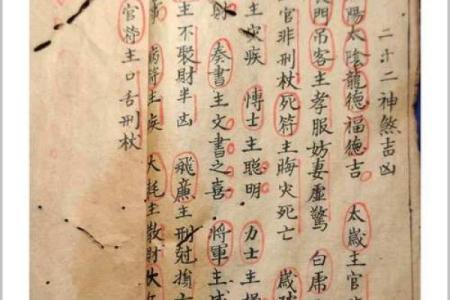 二十二神煞吉凶
陽太陰龍德福德吉 太歲主官
門吊客主孝服妨妻虛驚 白虎
官非刑杖死符主晦灾死亡 歲
主灾疾 博士主聰明 力士主
奏書主文書之喜 將軍主
主不聚財半凶 飛廉主刑尅損
病符主疾 大耗主散財大
官符主口舌刑杖